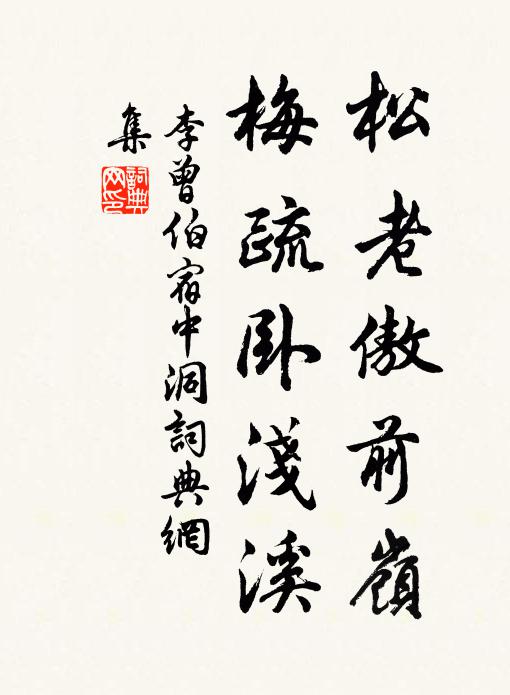 松老傲前嶺
梅疏卧淺溪
李曾伯宿中洞詞典網
集
詞典
网印